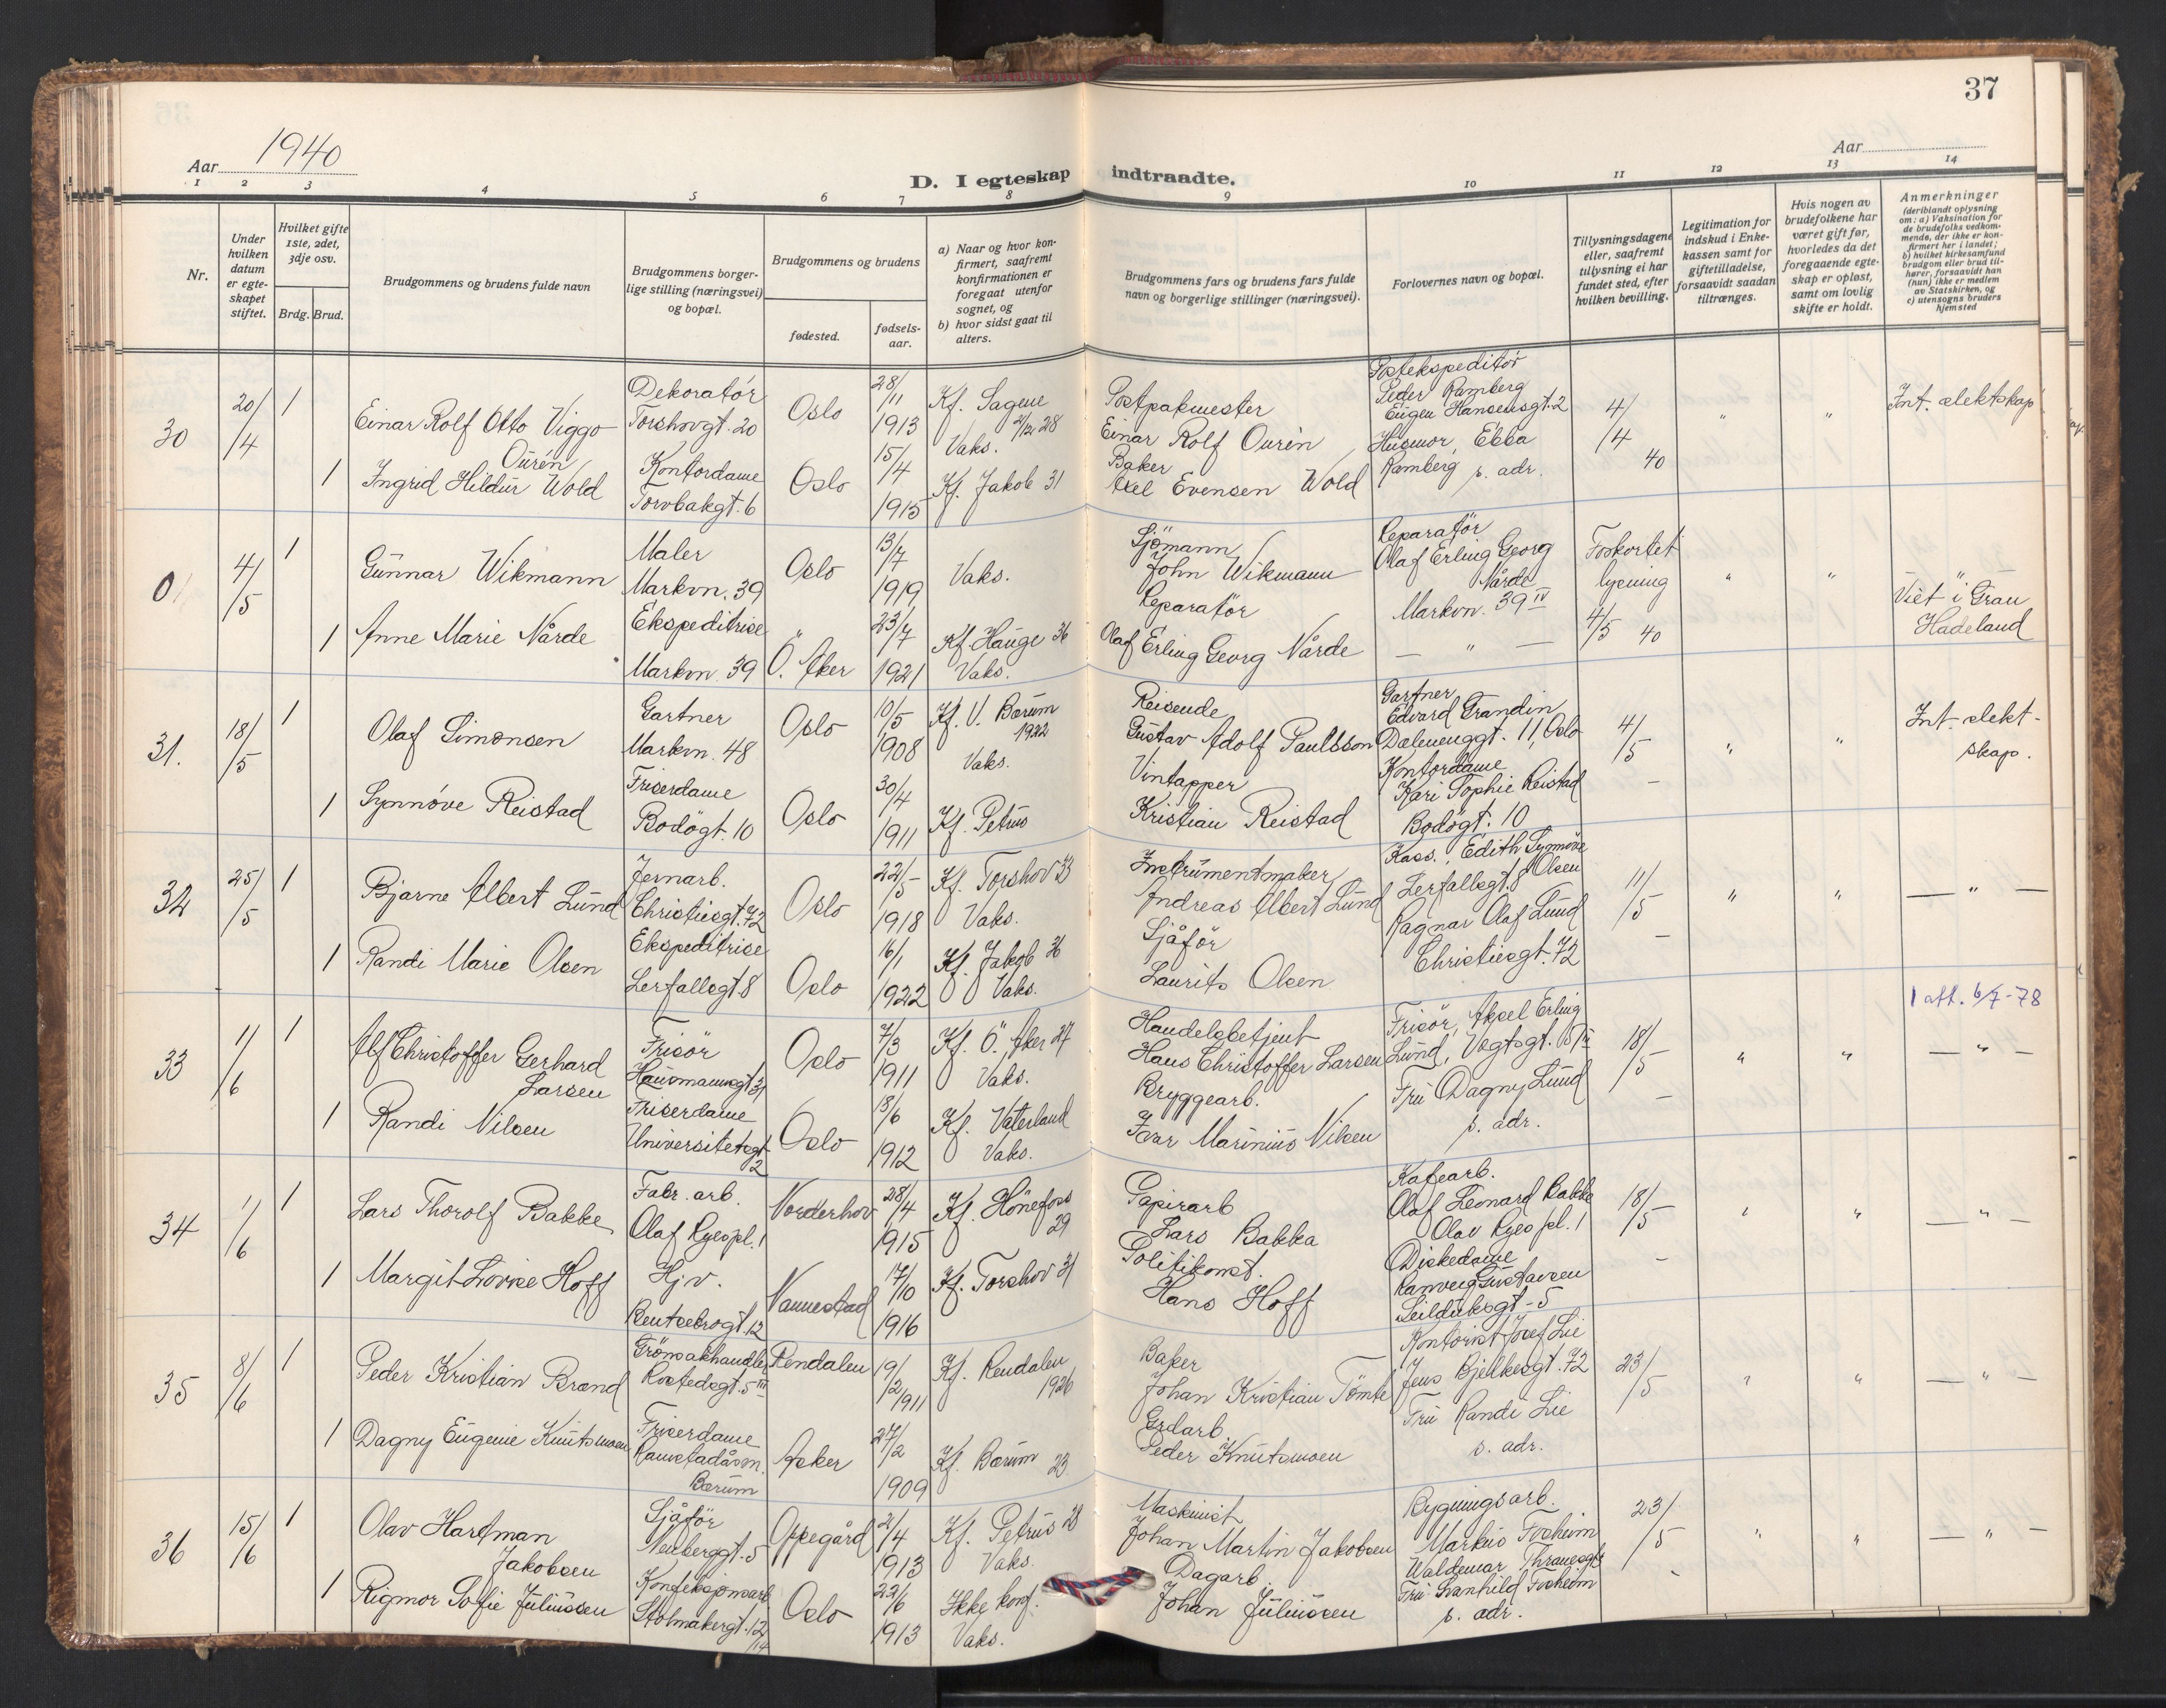 37
Aar 1940
Aar
D. I egteskap indtraadte.
1 2 3 4 5 6 7 8 9 10 11 12 13 14
Nr.
Under hvilken datum er egteskapet stiftet.
Hvilket gifte 1ste, 2det, 3dje osv.
Brdg. Brud.
Brudgommens og brudens fulde navn
Brudgommens borgerlige stilling (næringsvei) og bopæl.
Brudgommens og brudens
fødested.
fødselsaar.
a) Naar og hvor konfirmert, saafremt konfirmationen er foregaat utenfor sognet, og
b) hvor sidst gaat til alters.
Brudgommens fars og brudens fars fulde navn og borgerlige stillinger (næringsvei).
Forlovernes navn og bopæl.
Tillysningsdagene eller, saafremt tillysning ei har fundet sted, efter hvilken bevilling.
Legitimation for indskud i Enkekassen samt for giftetilladelse, forsaavidt saadan tiltrænges.
Hvis nogen av brudefolkene har været gift før, hvorledes da det foregaaende egteskap er opløst, samt om lovlig skifte er holdt.
Anmerkninger
(deriblandt oplysning om: a) Vaksination for de brudefolks vedkommende, der ikke er konfirmert her i landet;
b) hvilket kirkesamfund brudgom eller brud tilhører, forsaavidt han (hun) ikke er medlem av Statskirken, og
c) utensogns bruders hjemsted
30
20/4
1
Einar Rolf Otto Viggo Ourén
Dekoratør
Torshovgt. 20
Oslo
28/11 1913
Kf. Sagene 2/12 28
Vaks.
Postpakmester
Einar Rolf Ourén
Postekspeditør
Peder Ramberg
Eugen Hansensgt. 2
4/4 40
"
"
Int. slektskap
1
Ingrid Hildur Wold
Kontordame
Torvbakgt. 6
Oslo
15/4 1915
Kf. Jakob 31
Baker
Axel Evensen Wold
Husmor, Ebba
Ramberg s. adr.
0
4/5
1
Gunnar Wikmann
Maler
Markvn. 39
Oslo
13/7 1919
Vaks.
Sjömann
John Wikmann
Reparatör
Olaf Erling Georg
Nårde
Markvn. 39 IV
Foskortet
lysning
4/5 40
"
"
"
Viet i Gran
Hadeland
1
Anne Marie Nårde
Ekspeditrise
Markvn. 39
Ö. Aker
23/7 1921
Kf. Hauge 36
Vaks.
Reparatör
Olaf Erling Georg Nårde
— " —
31.
18/5
1
Olaf Simonsen
Gartner
Markvn. 48
Oslo
10/5 1908
Kf. V. Bærum 1922
Vaks.
Reisende
Gustav Adolf Paulsson
Gartner
Edvard Grandin
Dælenenggt. 11, Oslo
4/5
"
"
Int. slekt-
skap.
1
Synnøve Reistad
Friserdame
Bodögt. 10
Oslo
30/4 1911
Kf. Petrus
Vintapper
Kristian Reistad
Kontordame
Kari Sophie Reistad
Bodögt. 10
32
25/5
1
Bjarne Albert Lund
Jernarb.
Christiesgt. 72
Oslo
22/5 1918
Kf. Torshov 33
Vaks.
Instrumentmaker
Andreas Albert Lund
Kass., Edith Synnöve
Olsen
Lerfallsgt. 8
11/5
"
"
— " —
1
Randi Marie Olsen
Ekspeditrise
Lerfallsgt. 8
Oslo
16/1 1922
Kf. Jakob 36
Vaks.
Sjåför
Laurits Olsen
Ragnar Olaf Lund
Christiesgt. 72
33
1/6
1
Alf Christoffer Gerhard
Larsen
Frisör
Hausmannsgt. 31
Oslo
7/3 1911
Kf. Ö. Aker 27
Vaks.
Handelsbetjent
Hans Christoffer Larsen
Frisör, Aksel Erling
Lund, Vogtsgt.
18/5
"
"
1 att. 6/7-78
— " —
1
Randi Nilsen
Friserdame
Universitetsgt. 2
Oslo
18/6 1912
Kf. Vaterland
Vaks.
Bryggearb.
Ivar Marinius Nilsen
Fru Dagny Lund
s. adr.
34
1/6
1
Lars Thorolf Bakke
Fabr. arb.
Olaf Ryespl. 1
Norderhov
28/4 1915
Kf. Hönefoss 29
Papirarb
Lars Bakka
Kafearb.
Olaf Leonard Bakke
Olav Ryes pl. 1
18/5
"
"
— " —
1
Margit Lovise Hoff
Hj.v.
Bentsebrogt. 12
Nannestad
17/10 1916
Kf. Torshov 31
Politikonst.
Hans Hoff
Diskedame
Ranveig Gustavsen
Seilduksgt. 5
35
8/6
1
Peder Kristian Brænd
Grönsakhandler
Rostedsgt. 5 III
Rendalen
19/2 1911
Kf. Rendalen 1926
Baker
Johan Kristian Tömte
Kontorist Josef Lie
Jens Bjelkesgt. 72
23/5
"
"
— " —
1
Dagny Eugenie Knutsmoen
Friserdame
Ramstadåsvn.
Bærum
Asker
27/2 1909
Kf. Bærum 23
Grdarb.
Peder Knutsmoen
Fru Randi Lie
s. adr.
36
15/6
1
Olav Hartman
Jakobsen
Sjåför
Neuberggt. 5
Oppegård
2/4 1913
Kf. Petrus 28
Vaks.
Maskinist
Johan Martin Jakobsen
Bygningsarb.
Markus Fosheim
Waldemar Thranesgt.
23/5
"
"
— " —
1
Rigmor Sofie Juliussen
Konfeksjonsarb
Stolmakergt. 12/14
Oslo
22/6 1913
Ikke konf.
Vaks.
Dagarb.
Johan Juliussen
Fru Svanhild Fosheim
s. adr.